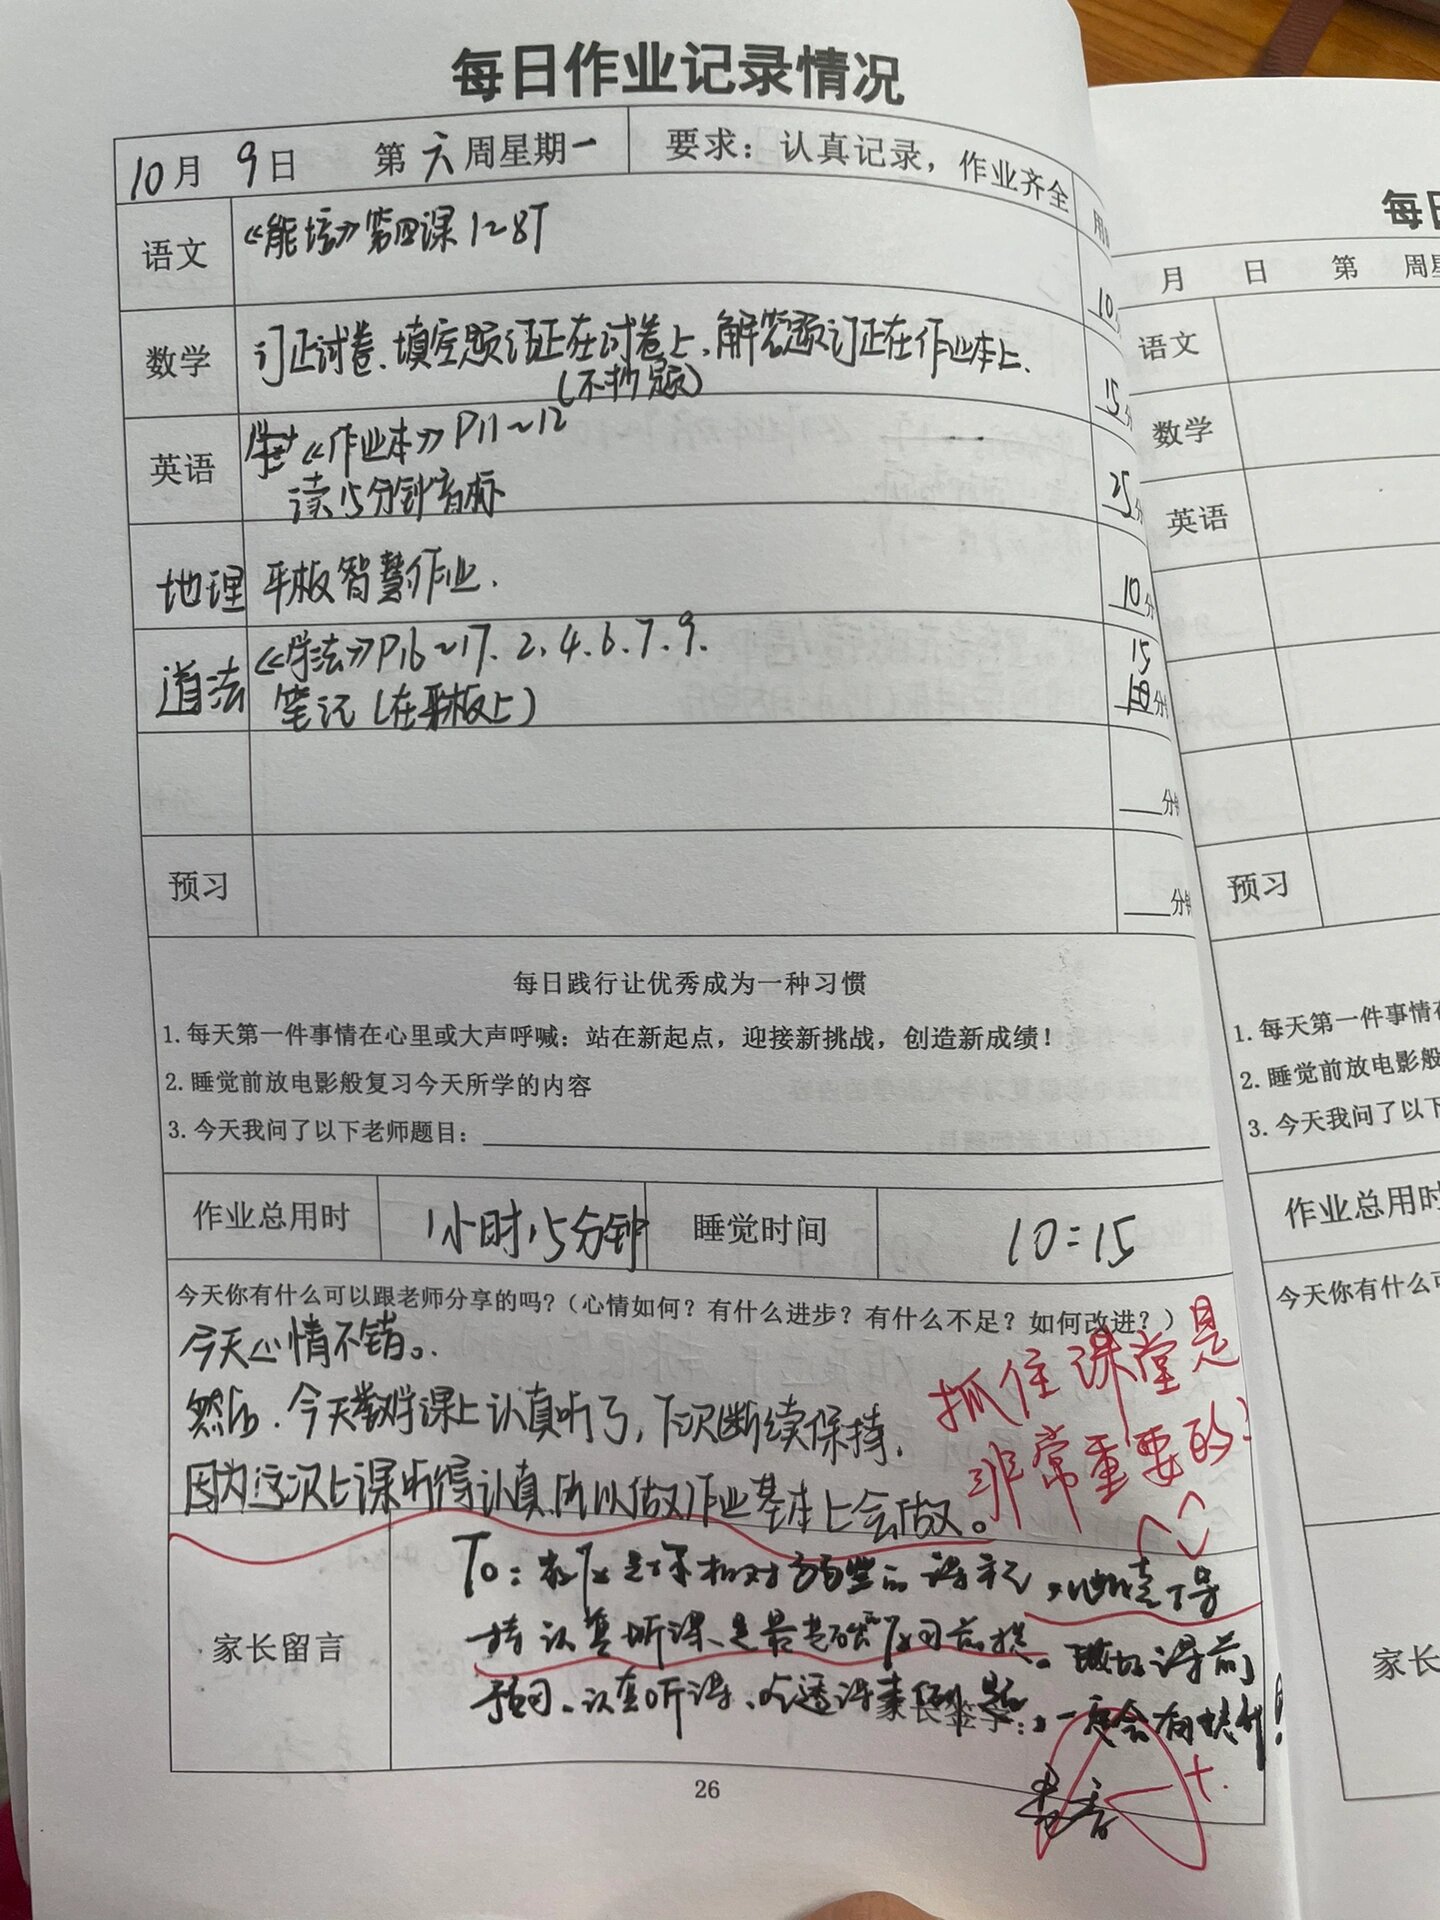 每日作业记录情况
10月 9日 第六周星期一 要求：认真记录，作业齐全
语文 《能培》第四课 1~8T 10
数学 订正试卷.填空题订正在试卷上,解答题订正在作业本上. 15分
(不抄题)
英语 《作业本》P11~12
读15分钟音标 25分
地理 平板智慧作业. 10分
道法 《学法》P16~17. 2. 4. 6. 7. 9. 15
笔记(在平板上) 分钟
分钟
预习 分钟
每日践行让优秀成为一种习惯
1.每天第一件事情在心里或大声呼喊：站在新起点，迎接新挑战，创造新成绩！
2.睡觉前放电影般复习今天所学的内容
3.今天我问了以下老师题目：
作业总用时 1小时15分钟 睡觉时间 10:15
今天你有什么可以跟老师分享的吗？（心情如何？有什么进步？有什么不足？如何改进？）
今天心情不错。
然后.今天数学课上认真听了,下次继续保持.
因为这次上课听得认真所以做作业基本上会做。
抓住课堂是
非常重要的
家长留言
To: 是你相对弱些的
持认真听课、是最
预习、认真听课、一定会有提升!
家长签字：
26
每日
月 日 第 周星
语文
数学
英语
预习
1.每天第一件事情在
2.睡觉前放电影般
3.今天我问了以下
作业总用时
今天你有什么可
家长